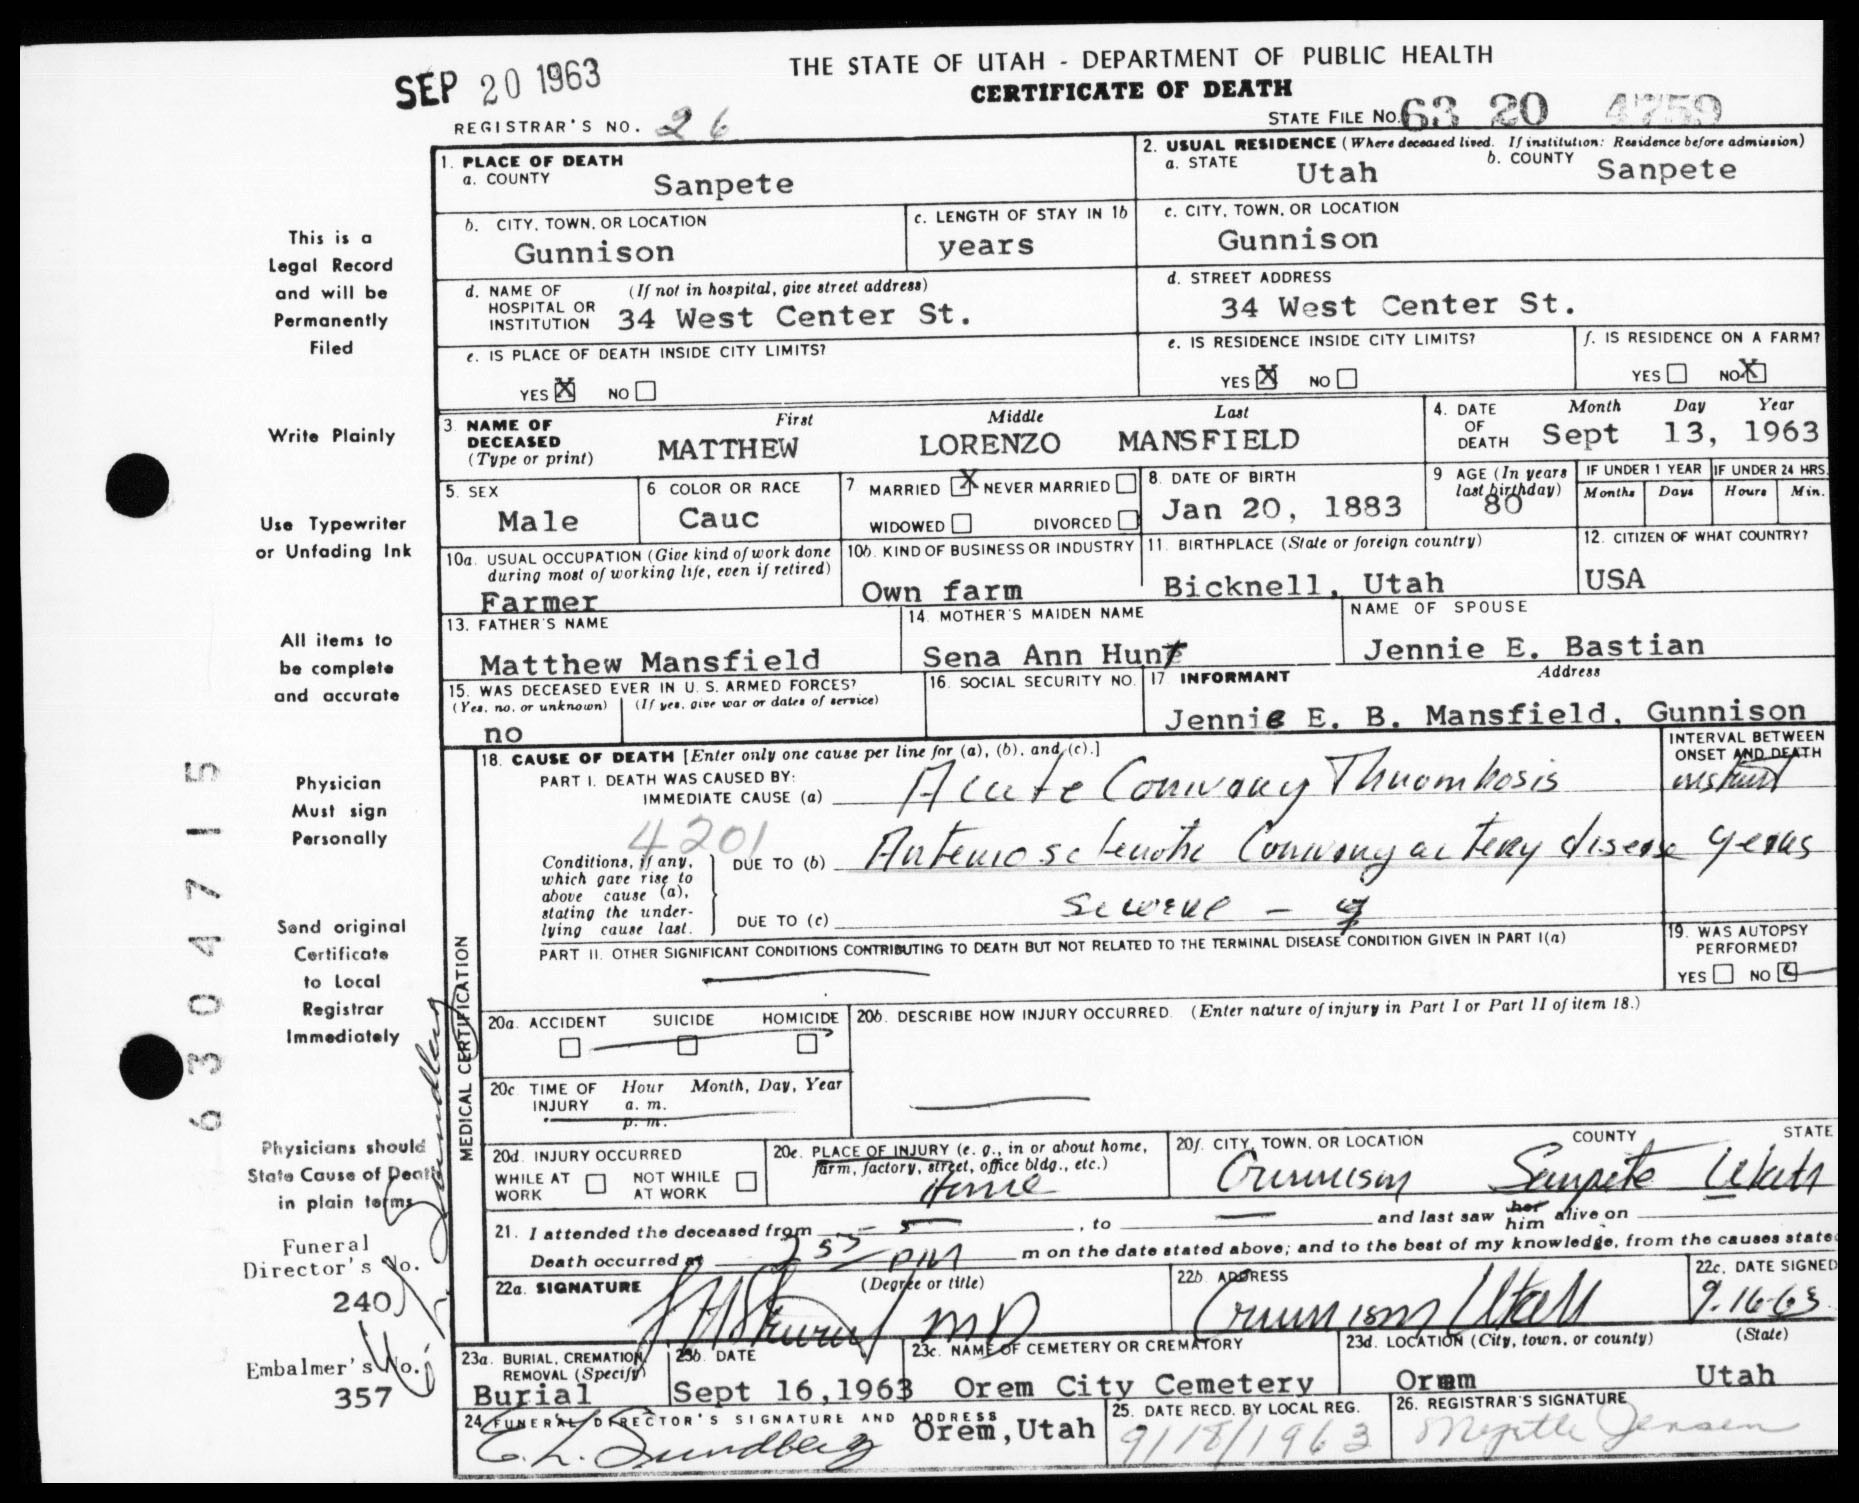 SEP 20 1963
THE STATE OF UTAH - DEPARTMENT OF PUBLIC HEALTH
CERTIFICATE OF DEATH
REGISTRAR'S NO. 26
STATE FILE NO. 63 20 4759
1. PLACE OF DEATH
a. COUNTY
Sanpete
2. USUAL RESIDENCE (Where deceased lived. If institution: Residence before admission)
a. STATE Utah b. COUNTY Sanpete
b. CITY, TOWN, OR LOCATION
Gunnison
c. LENGTH OF STAY IN 1b
years
c. CITY, TOWN, OR LOCATION
Gunnison
d. NAME OF HOSPITAL OR INSTITUTION (If not in hospital, give street address)
34 West Center St.
d. STREET ADDRESS
34 West Center St.
e. IS PLACE OF DEATH INSIDE CITY LIMITS?
YES X NO
e. IS RESIDENCE INSIDE CITY LIMITS?
YES X NO
f. IS RESIDENCE ON A FARM?
YES NO X
3. NAME OF DECEASED (Type or print)
First Middle Last
MATTHEW LORENZO MANSFIELD
4. DATE OF DEATH
Month Day Year
Sept 13, 1963
5. SEX
Male
6 COLOR OR RACE
Cauc
7 MARRIED X NEVER MARRIED
WIDOWED DIVORCED
8. DATE OF BIRTH
Jan 20, 1883
9 AGE (In years last birthday)
80
IF UNDER 1 YEAR
Months Days
IF UNDER 24 HRS.
Hours Min.
10a. USUAL OCCUPATION (Give kind of work done during most of working life, even if retired)
Farmer
10b. KIND OF BUSINESS OR INDUSTRY
Own farm
11. BIRTHPLACE (State or foreign country)
Bicknell, Utah
12. CITIZEN OF WHAT COUNTRY?
USA
13. FATHER'S NAME
Matthew Mansfield
14. MOTHER'S MAIDEN NAME
Sena Ann Hunt
NAME OF SPOUSE
Jennie E. Bastian
15. WAS DECEASED EVER IN U. S. ARMED FORCES?
(Yes, no, or unknown) (If yes, give war or dates of service)
no
16. SOCIAL SECURITY NO.
17. INFORMANT Address
Jennie E. B. Mansfield, Gunnison
18. CAUSE OF DEATH [Enter only one cause per line for (a), (b), and (c).]
INTERVAL BETWEEN ONSET AND DEATH
PART I. DEATH WAS CAUSED BY:
IMMEDIATE CAUSE (a) Acute Coronary Thrombosis instant
4201
Conditions, if any, which gave rise to above cause (a), stating the underlying cause last.
DUE TO (b) Arteriosclerotic Coronary artery disease years
DUE TO (c) severe -
PART II. OTHER SIGNIFICANT CONDITIONS CONTRIBUTING TO DEATH BUT NOT RELATED TO THE TERMINAL DISEASE CONDITION GIVEN IN PART I(a)
19. WAS AUTOPSY PERFORMED?
YES NO
MEDICAL CERTIFICATION
20a. ACCIDENT SUICIDE HOMICIDE
20b. DESCRIBE HOW INJURY OCCURRED. (Enter nature of injury in Part I or Part II of item 18.)
20c TIME OF INJURY Hour Month, Day, Year
a. m.
p. m.
20d. INJURY OCCURRED
WHILE AT WORK NOT WHILE AT WORK
20e. PLACE OF INJURY (e. g., in or about home, farm, factory, street, office bldg., etc.)
Home
20f. CITY, TOWN, OR LOCATION COUNTY STATE
Gunnison Sanpete Utah
21. I attended the deceased from , to and last saw her him alive on
Death occurred at 2 55 PM m on the date stated above; and to the best of my knowledge, from the causes state
22a. SIGNATURE (Degree or title)
MD
22b. ADDRESS
Gunnison Utah
22c. DATE SIGNED
9-16-63
23a. BURIAL, CREMATION, REMOVAL (Specify)
Burial
23b. DATE
Sept 16, 1963
23c. NAME OF CEMETERY OR CREMATORY
Orem City Cemetery
23d. LOCATION (City, town, or county) (State)
Orem Utah
24 FUNERAL DIRECTOR'S SIGNATURE AND ADDRESS
E. L. Sundberg Orem, Utah
25. DATE RECD. BY LOCAL REG.
9/18/1963
26. REGISTRAR'S SIGNATURE
Myrtle Jensen
This is a
Legal Record
and will be
Permanently
Filed
Write Plainly
Use Typewriter
or Unfading Ink
All items to
be complete
and accurate
Physician
Must sign
Personally
Send original
Certificate
to Local
Registrar
Immediately
Physicians should
State Cause of Death
in plain terms
Funeral
Director's No.
240
Embalmer's No.
357
63 04715